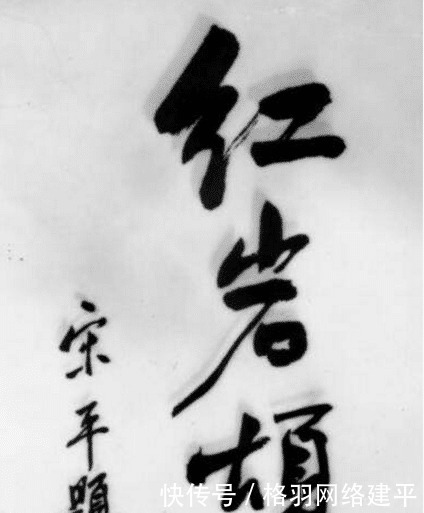 红岩
宋平題
快传号／格羽网络建平